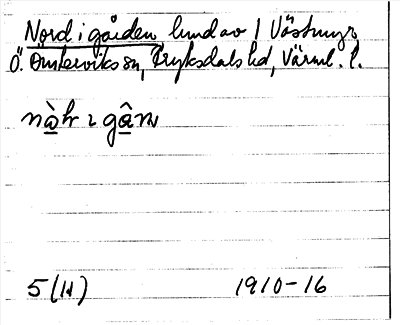 Nord i gården lund av / Västmyr
Ö. Ämterviks sn, Fryksdals hd, Värml. l.
nàhr ɩ gâṛṇ
5 (H) 1910-16